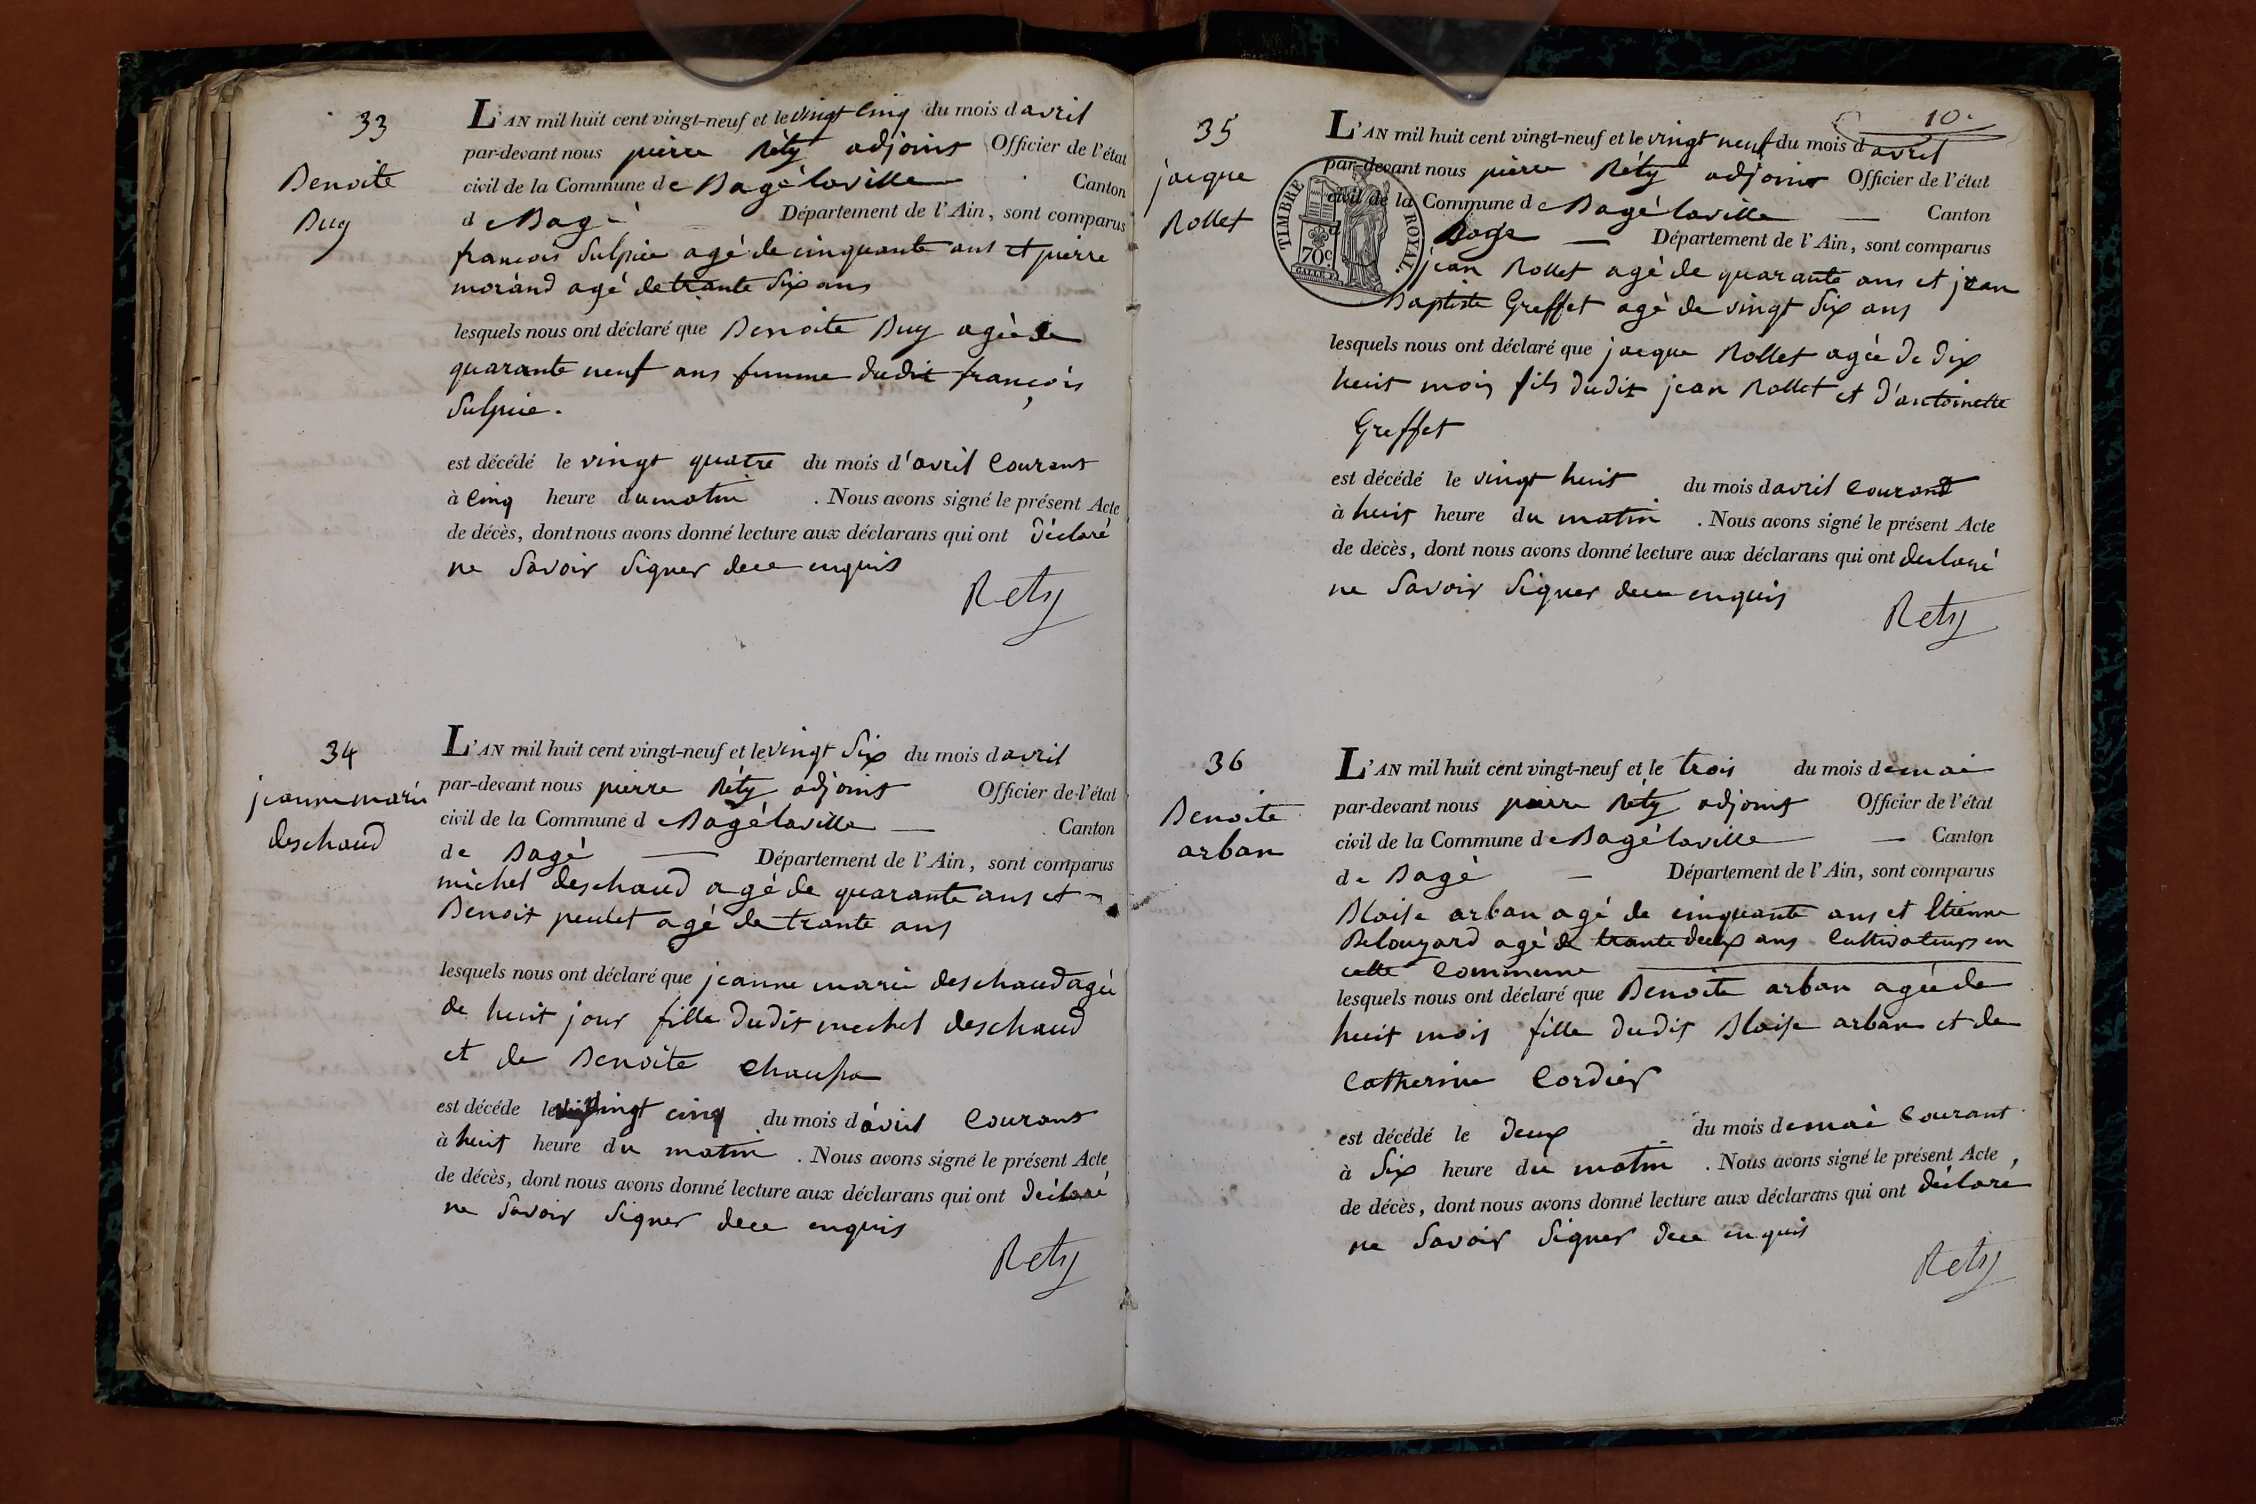 33
Benoite
Buy
L'AN mil huit cent vingt-neuf et le vingt cinq du mois d avril
par-devant nous pierre Réty adjoint Officier de l'état
civil de la Commune de Bagélaville Canton
d e Bagé Département de l'Ain, sont comparus
françois Sulpice agé de cinquante ans et pierre
morand agé de trante Six ans
lesquels nous ont déclaré que Benoite Buy agée de
quarante neuf ans femme dudit françois
Sulpice.
est décédé le vingt quatre du mois d'avril Courant
à Cinq heure du matin . Nous avons signé le présent Acte
de décès, dont nous avons donné lecture aux déclarans qui ont déclaré
ne Savoir Signer dece enquis
Rety
34
jeanne marie
deschaud
L'AN mil huit cent vingt-neuf et le vingt Six du mois d avril
par-devant nous pierre Réty adjoint Officier de l'état
civil de la Commune d e Bagélaville Canton
de Bagé Département de l'Ain, sont comparus
michel deschaud agé de quarante ans et
Benoit peulet agé de trante ans
lesquels nous ont déclaré que jeanne marie deschaud agée
de huit jour fille dudit mechel deschaud
et de Benoite
est décéde le vingt cinq du mois d avril Courant
à huit heure du matin . Nous avons signé le présent Acte
de décès, dont nous avons donné lecture aux déclarans qui ont déclaré
ne Savoir Signer dece enquis
Rety
10
35
jacque
Rollet
TIMBRE ROYAL
70c
L'AN mil huit cent vingt-neuf et le vingt neuf du mois d avril
par-devant nous pierre Réty adjoint Officier de l'état
civil de la Commune d e Bagélaville Canton
Bage Département de l'Ain, sont comparus
jean Rollet agé de quarante ans et jean
Baptiste Greffet agé de vingt Six ans
lesquels nous ont déclaré que jacque Rollet agée de dix
huit mois fils dudit jean Rollet et d'antoinette
Greffet
est décédé le vingt huit du mois d avril Courant
à huit heure du matin . Nous avons signé le présent Acte
de décès, dont nous avons donné lecture aux déclarans qui ont declaré
ne Savoir Signer dece enquis
Rety
36
Benoite
arban
L'AN mil huit cent vingt-neuf et le trois du mois d e mai
par-devant nous pierre Réty adjoint Officier de l'état
civil de la Commune d e Bagélaville Canton
de Bagé Département de l'Ain, sont comparus
Blaise arban agé de cinquante ans et Etienne
Belouzard agé de trante deux ans Cultivateurs en
cette Commune
lesquels nous ont déclaré que Benoite arban agée de
huit mois fille dudit Blaise arban et de
Catherine Cordier
est décédé le deux du mois d e mai Courant
à Six heure du matin . Nous avons signé le présent Acte
de décès, dont nous avons donné lecture aux déclarans qui ont déclaré
ne Savoir Signer dece enquis
Rety